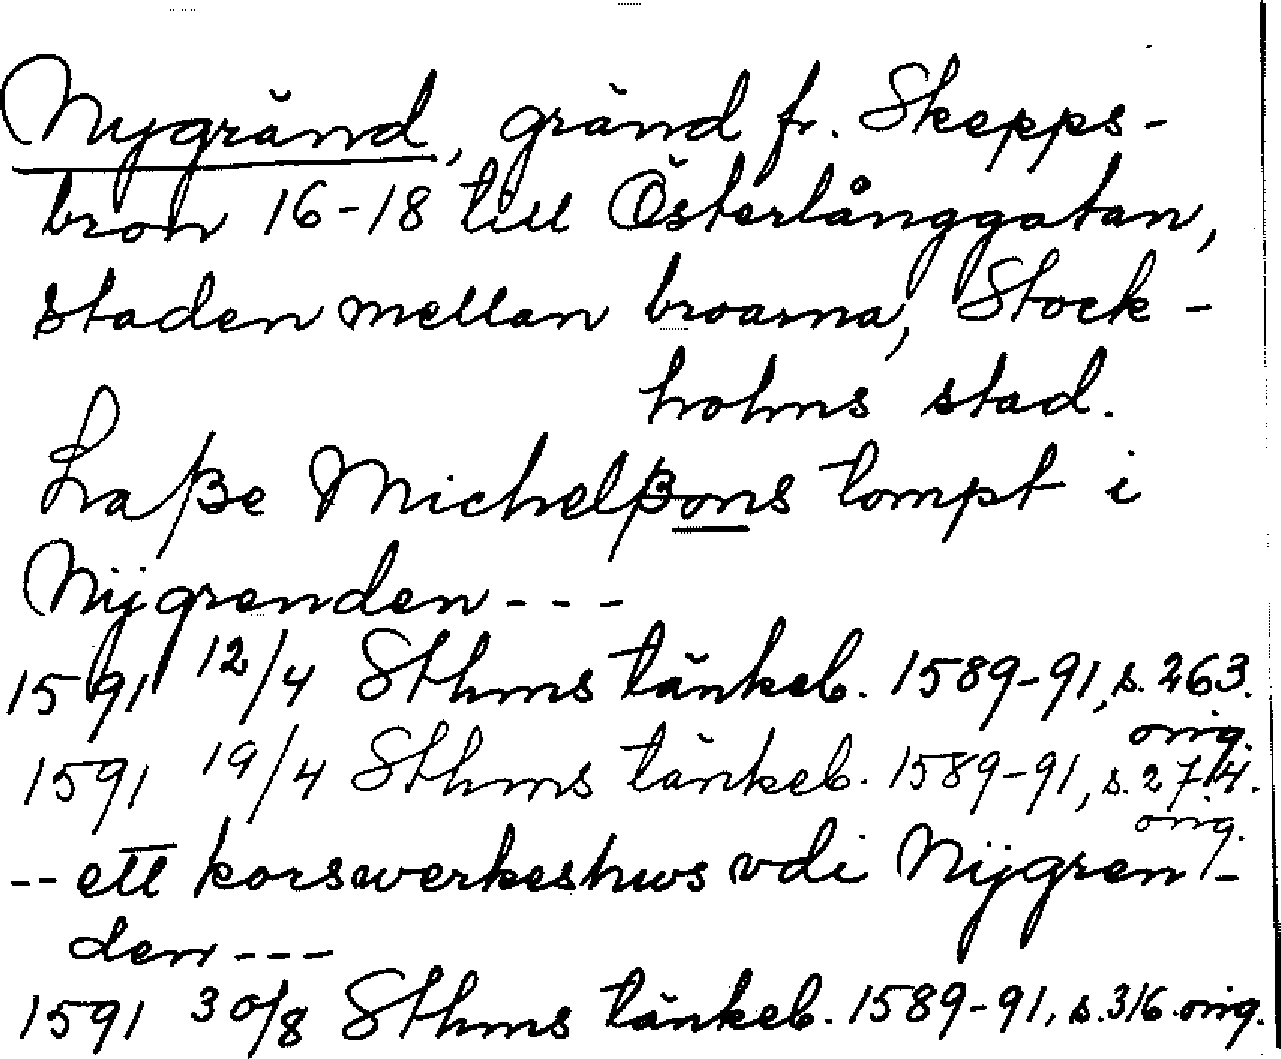 Nygränd, gränd fr. Skepps-
bron 16-18 till Österlånggatan,
staden mellan broarna, Stock-
holms stad.
Laße Michelßons tompt i
Nijgrenden - - -
1591 12/4 Sthms tänkeb. 1589-91, s. 263.
orig.
1591 19/4 Sthms tänkeb. 1589-91, s. 274.
orig.
-- ett korswerkeshws vdi Nijgren-
den ---
1591 30/8 Sthms tänkeb. 1589-91, s. 316 orig.